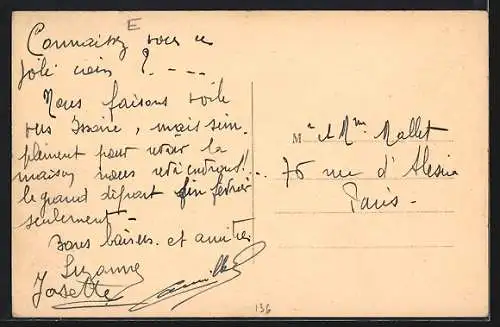 E
Connaissez vous ce
joli coin ? - - - -
Nous faisons voile
vers Issoire, mais sim-
plement pour voir la
maison nous reviendrons!! - -
le grand départ fin février
seulement -
Bons baisers et amitiés
Suzanne
Josette Camille
M r & Mme Mallet
76 rue d'Alésia
Paris -
136